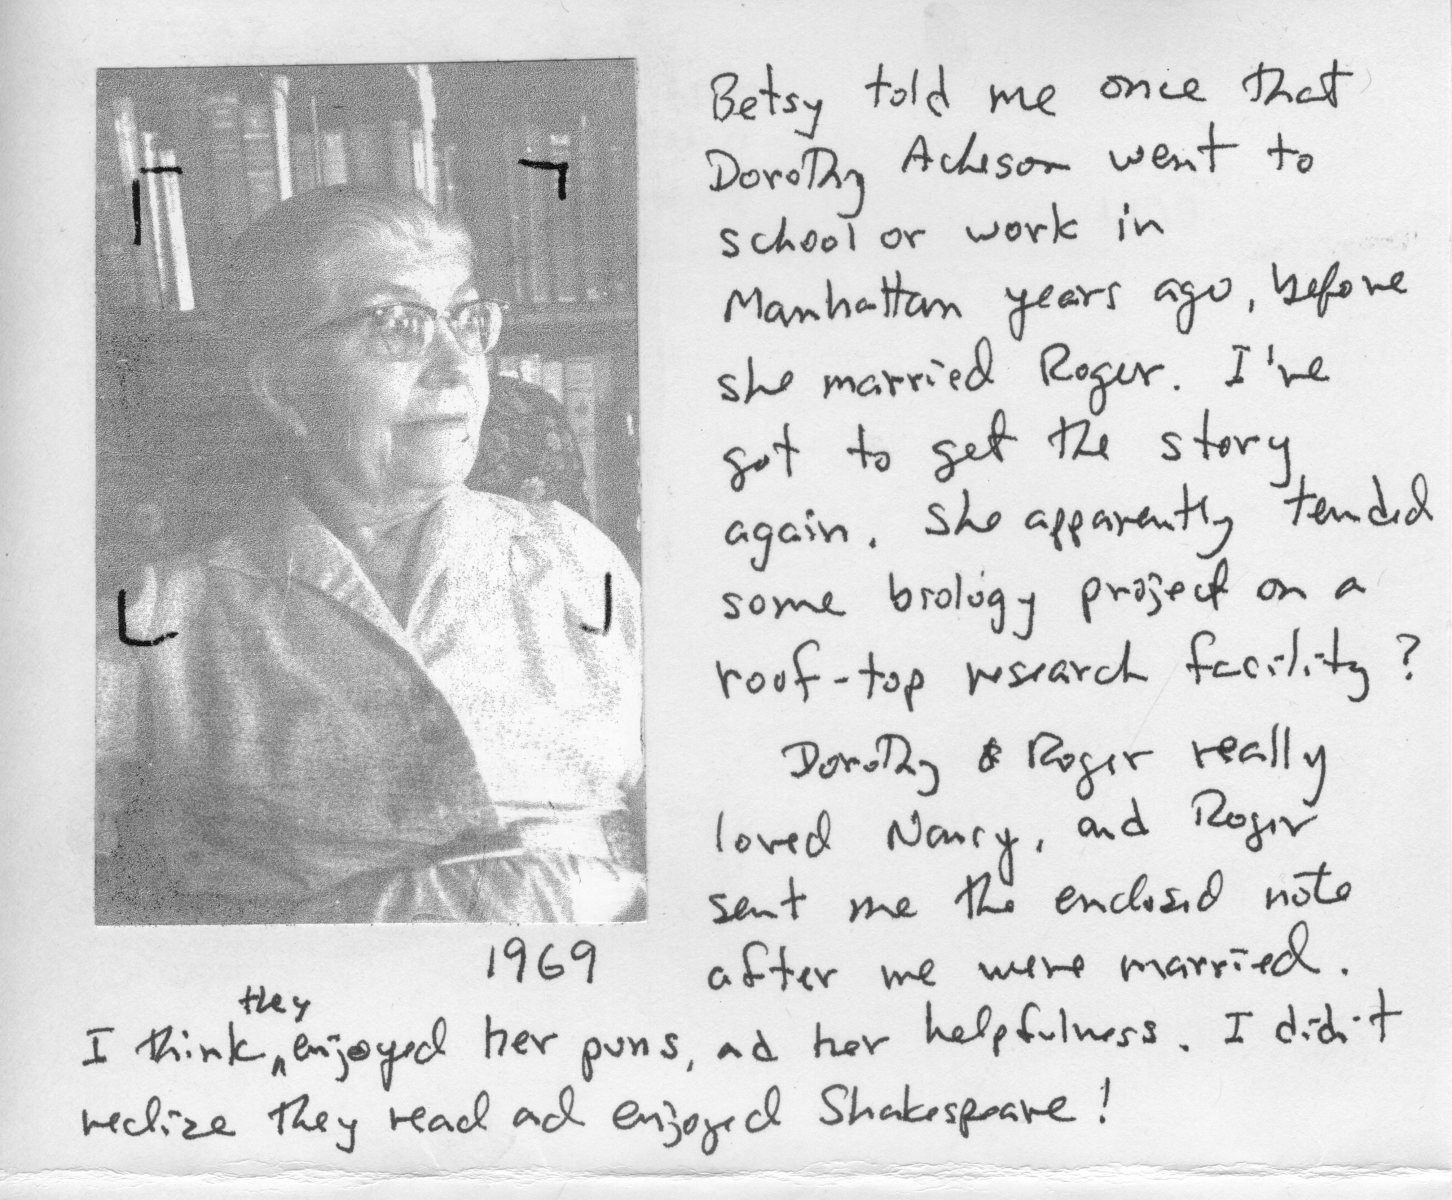 Betsy told me once that
Dorothy Acheson went to
school or work in
Manhattan years ago, before
she married Roger. I've
got to get the story
again. She apparently tended
some biology project on a
roof-top research facility?
Dorothy & Roger really
loved Nancy, and Roger
sent me the enclosed note
after we were married.
1969
I think they enjoyed her puns, ad her helpfulness. I didn't
realize they read ad enjoyed Shakespeare!